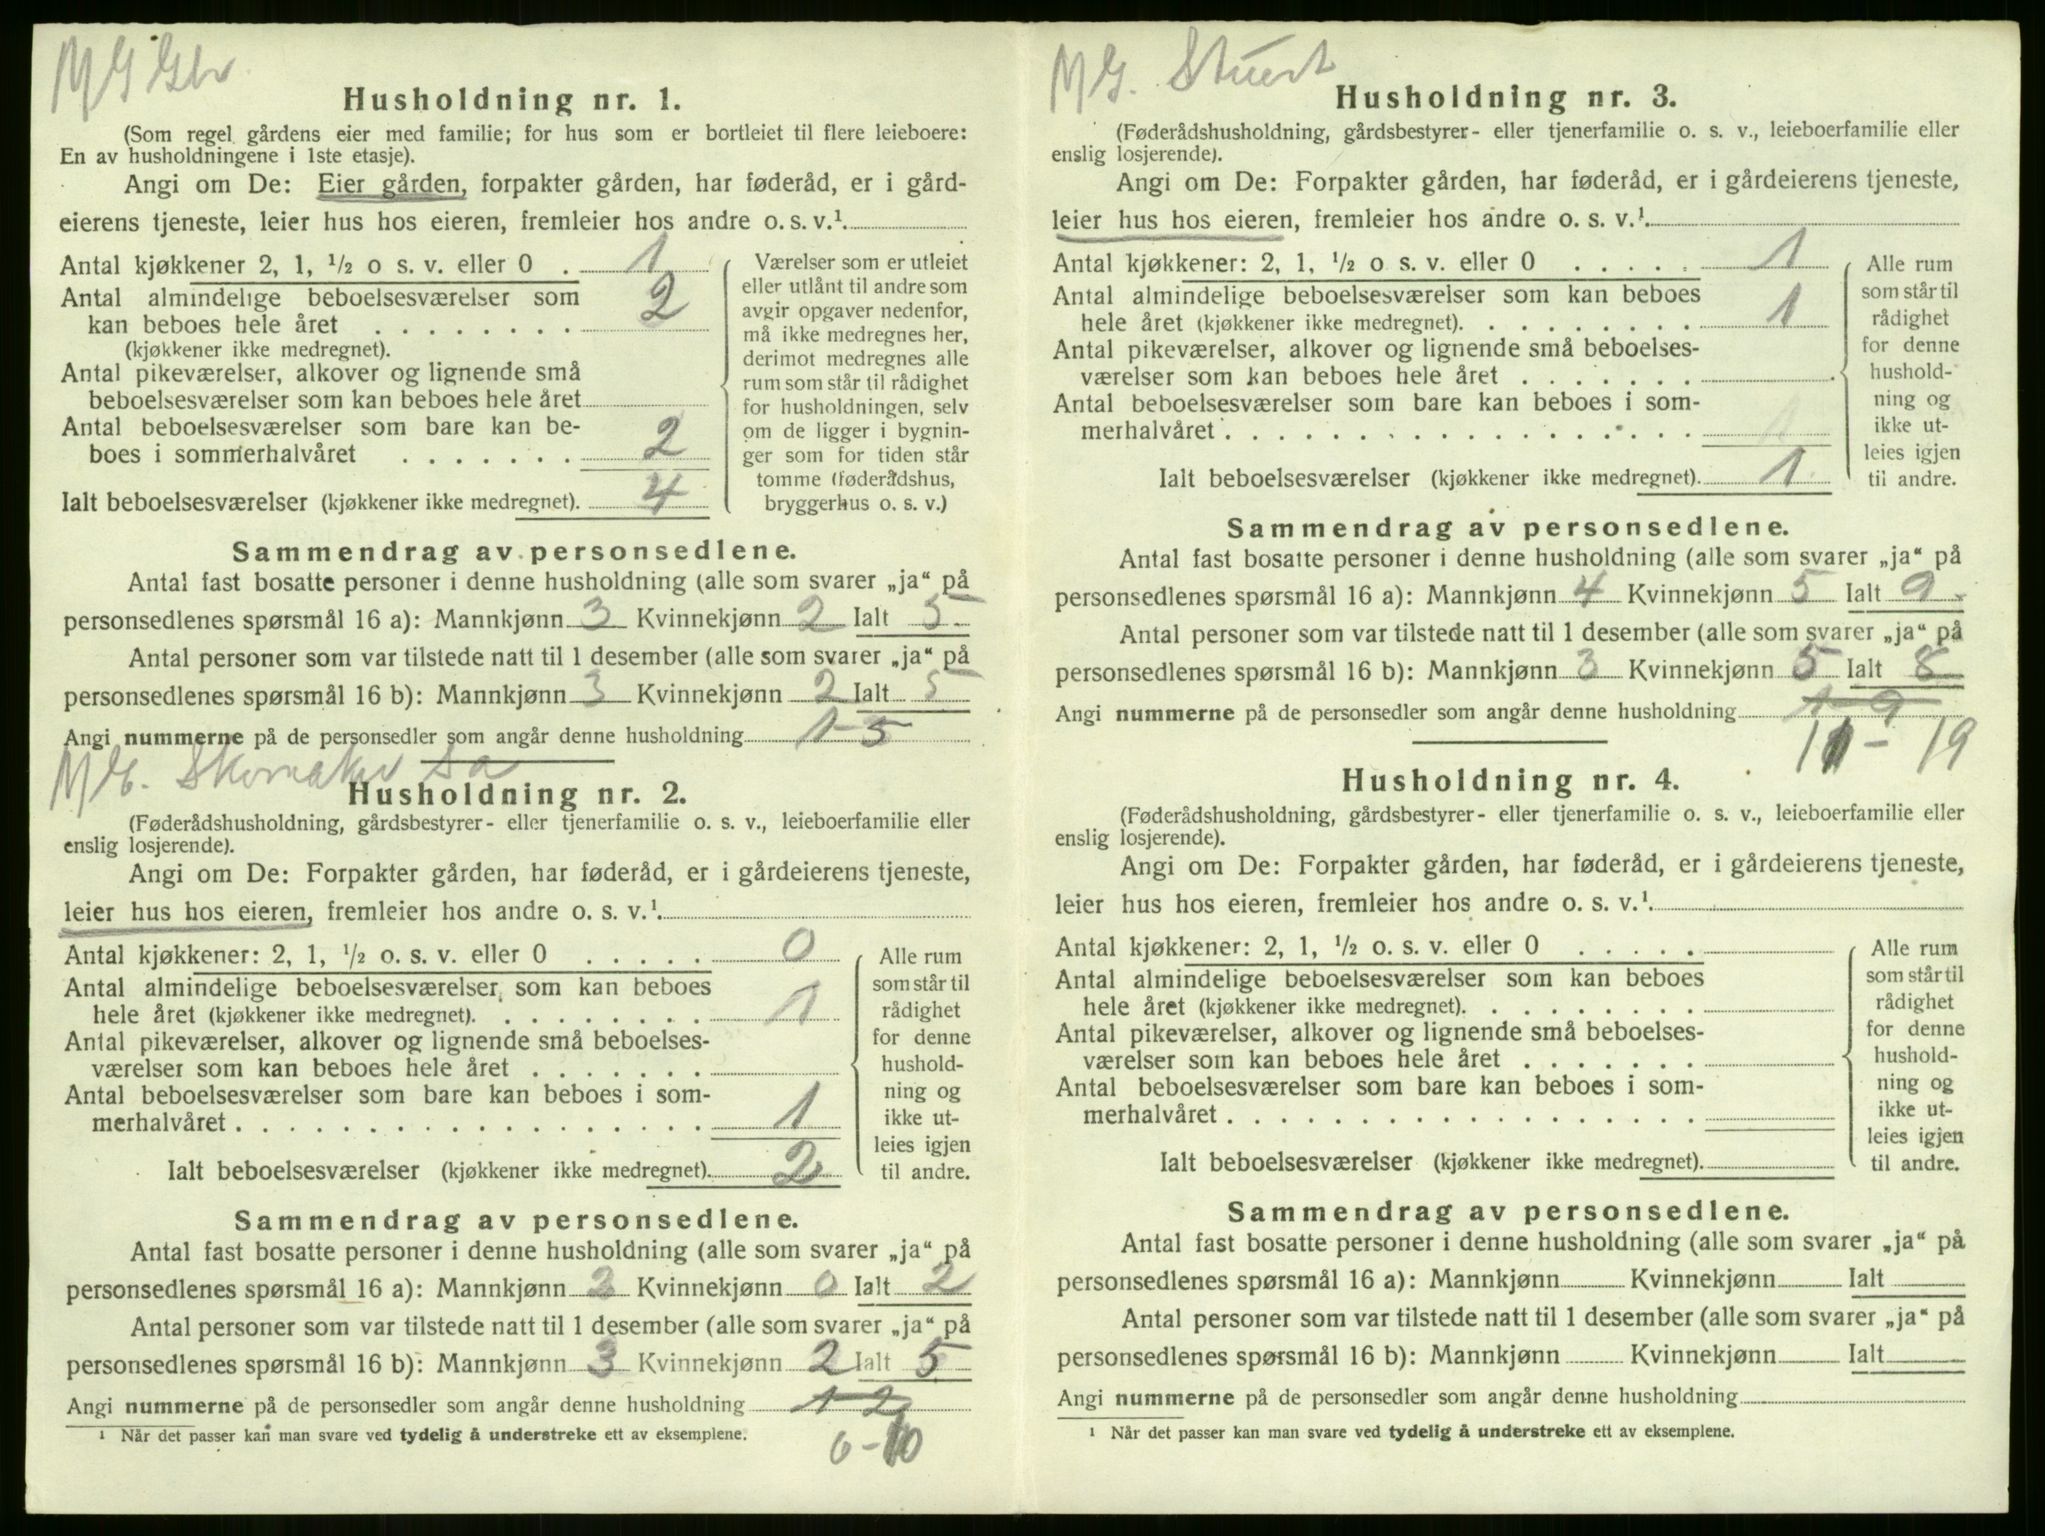 Husholdning nr. 1.
(Som regel gårdens eier med familie; for hus som er bortleiet til flere leieboere:
En av husholdningene i 1ste etasje).
Angi om De: Eier gården, forpakter gården, har føderåd, er i gård-
eierens tjeneste, leier hus hos eieren, fremleier hos andre o. s. v.¹.
Antal kjøkkener 2, 1, ½ o s. v. eller 0 . 1
Antal almindelige beboelsesværelser som
kan beboes hele året . . . . . . . . 2
(kjøkkener ikke medregnet).
Antal pikeværelser, alkover og lignende små
beboelsesværelser som kan beboes hele året
Antal beboelsesværelser som bare kan be-
boes i sommerhalvåret . . . . . . . 2
Ialt beboelsesværelser (kjøkkener ikke medregnet). 4
Værelser som er utleiet
eller utlånt til andre som
avgir opgaver nedenfor,
må ikke medregnes her,
derimot medregnes alle
rum som står til rådighet
for husholdningen, selv
om de ligger i bygnin-
ger som for tiden står
tomme (føderådshus,
bryggerhus o. s. v.)
Sammendrag av personsedlene.
Antal fast bosatte personer i denne husholdning (alle som svarer „ja“ på
personsedlenes spørsmål 16 a): Mannkjønn 3 Kvinnekjønn 2 Ialt 5
Antal personer som var tilstede natt til 1 desember (alle som svarer „ja“ på
personsedlenes spørsmål 16 b): Mannkjønn 3 Kvinnekjønn 2 Ialt 5
Angi nummerne på de personsedler som angår denne husholdning 1-5
Husholdning nr. 2.
(Føderådshusholdning, gårdsbestyrer- eller tjenerfamilie o. s. v., leieboerfamilie eller
enslig losjerende).
Angi om De: Forpakter gården, har føderåd, er i gårdeierens tjeneste,
leier hus hos eieren, fremleier hos andre o. s. v.¹.
Antal kjøkkener: 2, 1, ½ o. s. v. eller 0 . . . . . 0
Antal almindelige beboelsesværelser, som kan beboes
hele året (kjøkkener ikke medregnet). . . . . . . . . 1
Antal pikeværelser, alkover og lignende små beboelses-
værelser som kan beboes hele året . . . . . . .
Antal beboelsesværelser som bare kan beboes i som-
merhalvåret . . . . . . . . . . . . . . . . . . 1
Ialt beboelsesværelser (kjøkkener ikke medregnet). 2
Alle rum
som står til
rådighet
for denne
hushold-
ning og
ikke ut-
leies igjen
til andre.
Sammendrag av personsedlene.
Antal fast bosatte personer i denne husholdning (alle som svarer „ja“ på
personsedlenes spørsmål 16 a): Mannkjønn 2 Kvinnekjønn 0 Ialt 2
Antal personer som var tilstede natt til 1 desember (alle som svarer „ja“ på
personsedlenes spørsmål 16 b): Mannkjønn 3 Kvinnekjønn 2 Ialt 5
Angi nummerne på de personsedler som angår denne husholdning 1-2
6-10
¹ Når det passer kan man svare ved tydelig å understreke ett av eksemplene.
MG. Stuert
Husholdning nr. 3.
(Føderådshusholdning, gårdsbestyrer- eller tjenerfamilie o. s. v., leieboerfamilie eller
enslig losjerende).
Angi om De: Forpakter gården, har føderåd, er i gårdeierens tjeneste,
leier hus hos eieren, fremleier hos andre o. s. v.¹.
Antal kjøkkener: 2, 1, ½ o s. v. eller 0 . . . . . 1
Antal almindelige beboelsesværelser som kan beboes
hele året (kjøkkener ikke medregnet). . . . . . . . . 1
Antal pikeværelser, alkover og lignende små beboelses-
værelser som kan beboes hele året . . . . . . .
Antal beboelsesværelser som bare kan beboes i som-
merhalvåret . . . . . . . . . . . . . . . . . .
Ialt beboelsesværelser (kjøkkener ikke medregnet). 1
Alle rum
som står til
rådighet
for denne
hushold-
ning og
ikke ut-
leies igjen
til andre.
Sammendrag av personsedlene.
Antal fast bosatte personer i denne husholdning (alle som svarer „ja“ på
personsedlenes spørsmål 16 a): Mannkjønn 4 Kvinnekjønn 5 Ialt 9
Antal personer som var tilstede natt til 1 desember (alle som svarer „ja“ på
personsedlenes spørsmål 16 b): Mannkjønn 3 Kvinnekjønn 5 Ialt 8
Angi nummerne på de personsedler som angår denne husholdning 1-9
11-19
Husholdning nr. 4.
(Føderådshusholdning, gårdsbestyrer- eller tjenerfamilie o. s. v., leieboerfamilie eller
enslig losjerende).
Angi om De: Forpakter gården, har føderåd, er i gårdeierens tjeneste,
leier hus hos eieren, fremleier hos andre o. s. v.¹.
Antal kjøkkener: 2, 1, ½ o. s. v. eller 0 . . . . .
Antal almindelige beboelsesværelser som kan beboes
hele året (kjøkkener ikke medregnet). . . . . . . . .
Antal pikeværelser, alkover og lignende små beboelses-
værelser som kan beboes hele året . . . . . . .
Antal beboelsesværelser som bare kan beboes i som-
merhalvåret . . . . . . . . . . . . . . . . . .
Ialt beboelsesværelser (kjøkkener ikke medregnet).
Alle rum
som står til
rådighet
for denne
hushold-
ning og
ikke ut-
leies igjen
til andre.
Sammendrag av personsedlene.
Antal fast bosatte personer i denne husholdning (alle som svarer „ja“ på
personsedlenes spørsmål 16 a): Mannkjønn Kvinnekjønn Ialt
Antal personer som var tilstede natt til 1 desember (alle som svarer „ja“ på
personsedlenes spørsmål 16 b): Mannkjønn Kvinnekjønn Ialt
Angi nummerne på de personsedler som angår denne husholdning
¹ Når det passer kan man svare ved tydelig å understreke ett av eksemplene.